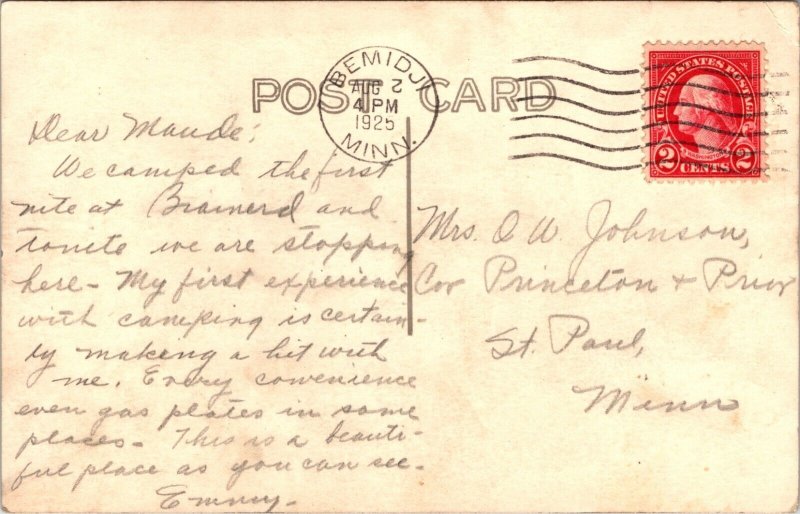 POST CARD
BEMIDJI
AUG 2
4 PM
1925
MINN.
UNITED STATES POSTAGE
WASHINGTON
2 CENTS 2
Dear Maude:
We camped the first
nite at Brainerd and
tonite we are stopping
here - My first experience
with camping is certain-
ly making a hit with
me. Every convenience
even gas plates in some
places - This is a beauti-
ful place as you can see.
Mrs. O W. Johnson,
Cor Princeton + Prior
St. Paul,
Minn